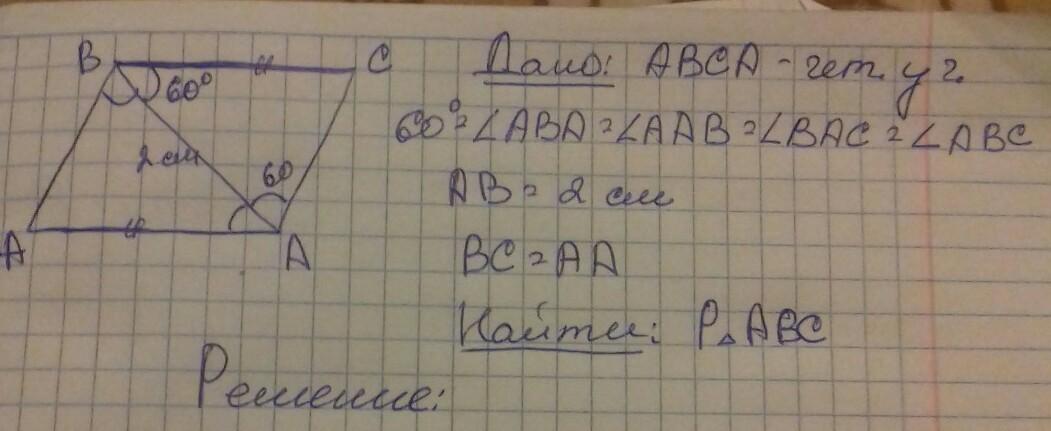 B C
60°
2 см
60
A A
Дано: ABCA - чет. уг.
60° = ∠ABA = ∠AAB = ∠BAC = ∠ABC
AB = 2 см
BC = AA
Найти: P△ABC
Решение: